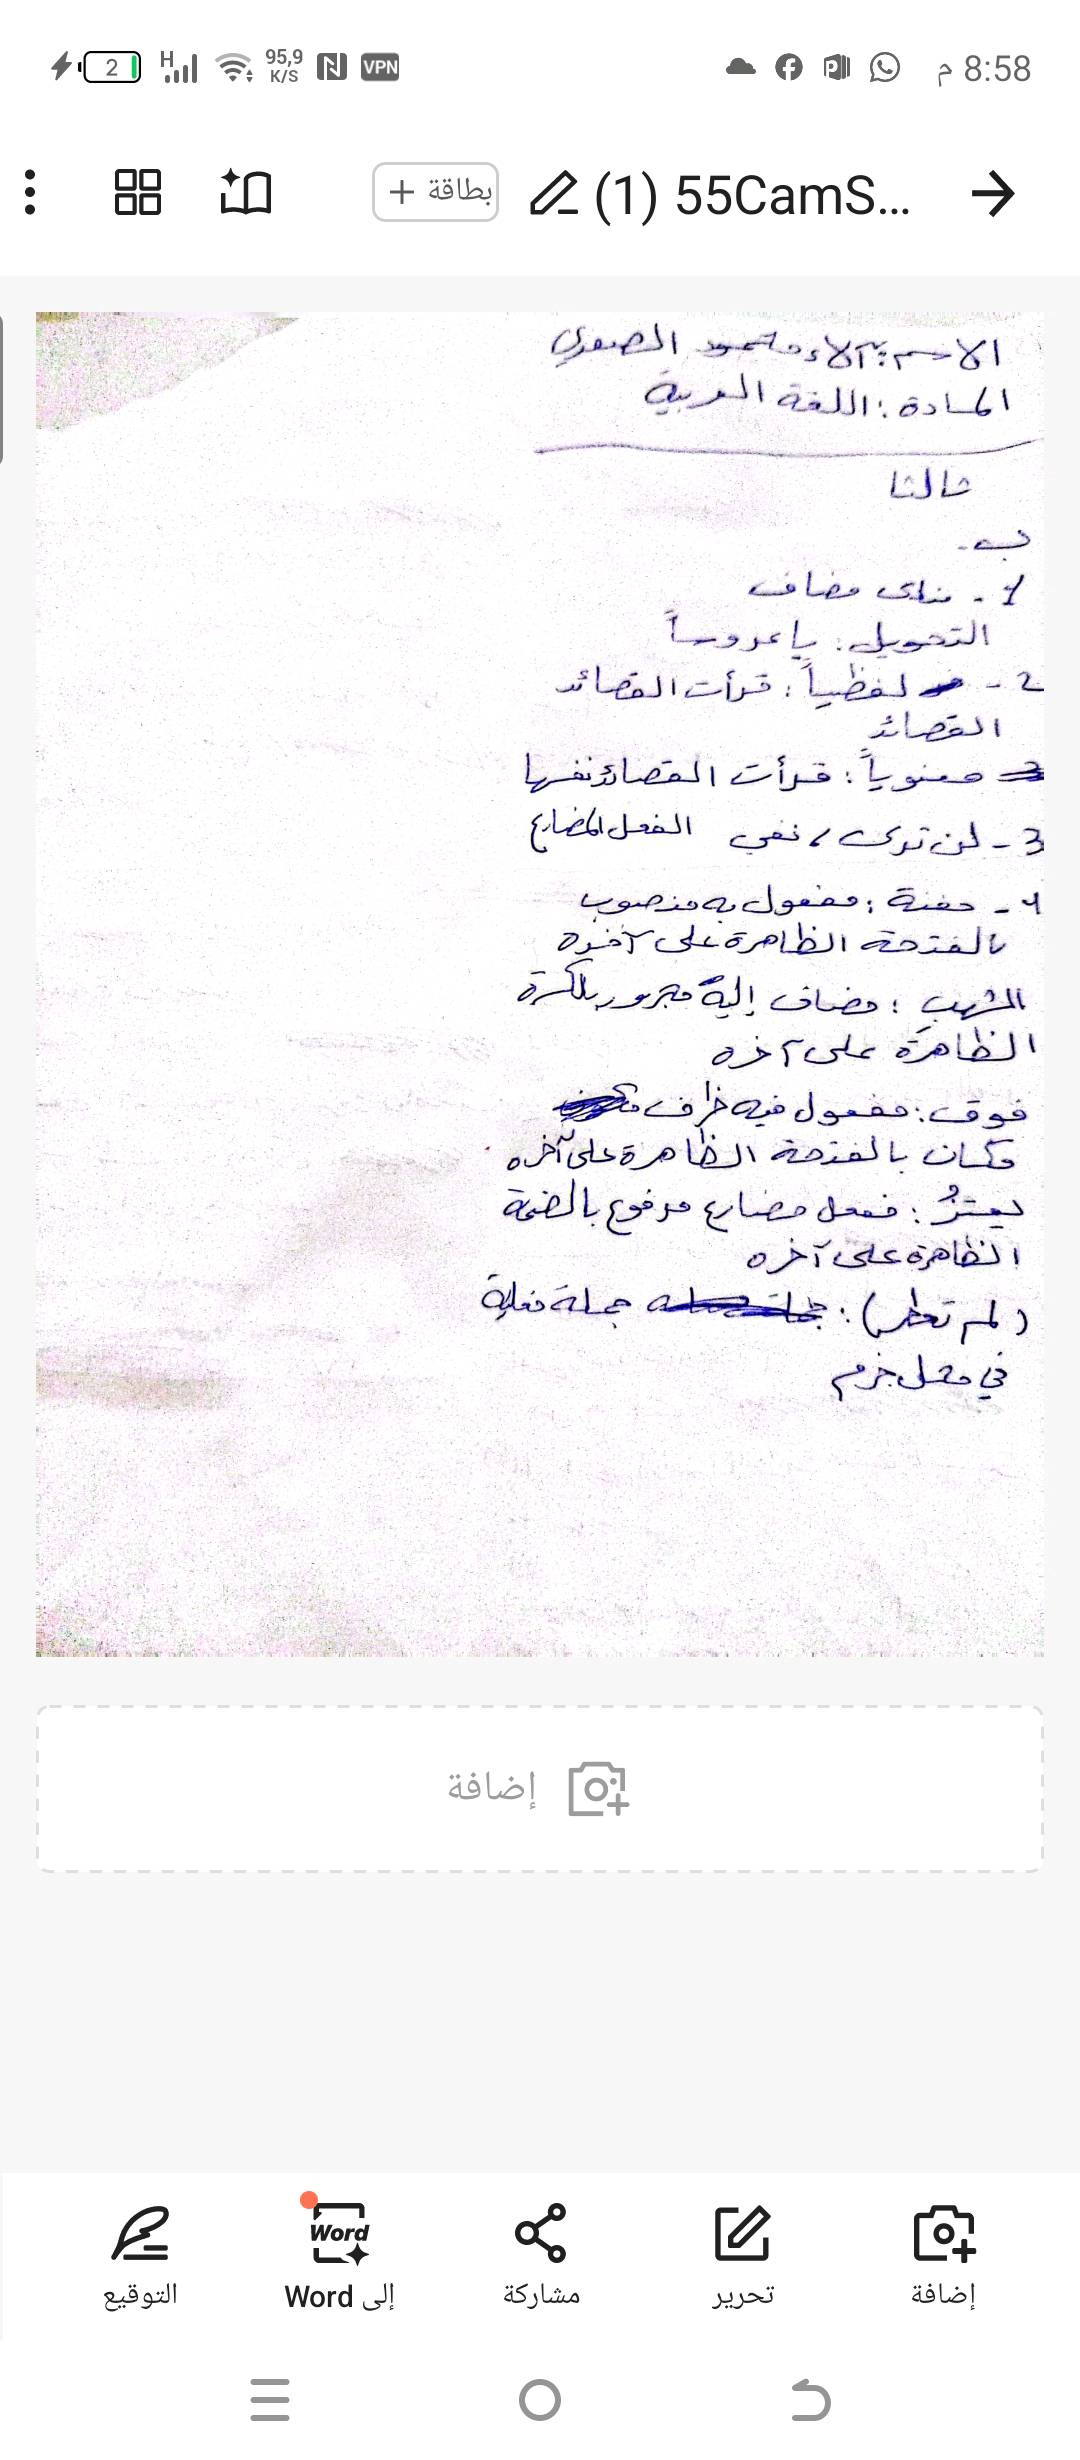 2 H 95,9 K/S N VPN 8:58 م
بطاقة + (1) 55CamS...
الاسم: آلاء محمود الصعري
المادة: اللغة العربية
ثالثا
ب-
1 - منادى مضاف
التحويل: يا عروساً
2 - لفظياً: قرأت القصائد
القصائد
معنوياً: قرأت القصائد نفسها
3 - لن ترى، نفي الفعل المضارع
4 - حفنة: مفعول به منصوب
بالفتحة الظاهرة على آخره
الشهب: مضاف إليه مجرور بالكسرة
الظاهرة على آخره
فوق: مفعول فيه ظرف
مكان بالفتحة الظاهرة على آخره
يعتزُّ: فعل مضارع مرفوع بالضمة
الظاهرة على آخره
(لم تعطر): جملة فعلية
في محل جزم
إضافة
إضافة تحرير مشاركة إلى Word التوقيع